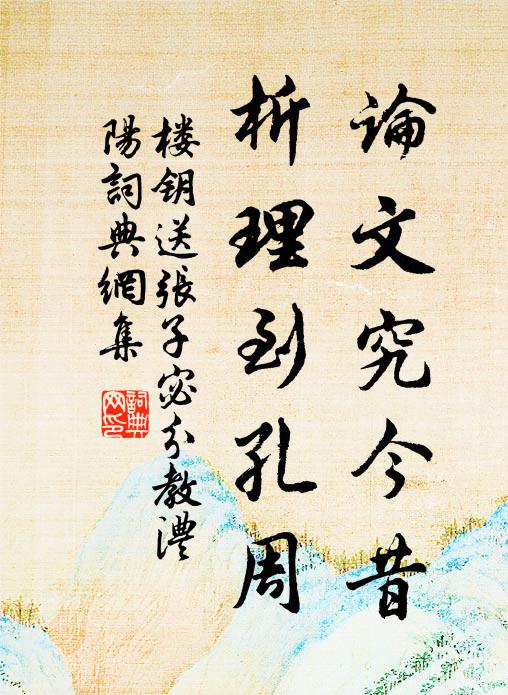 論文究今昔
析理到孔周
楼钥送張子宓分教澧
陽詞典網集
詞典
网印